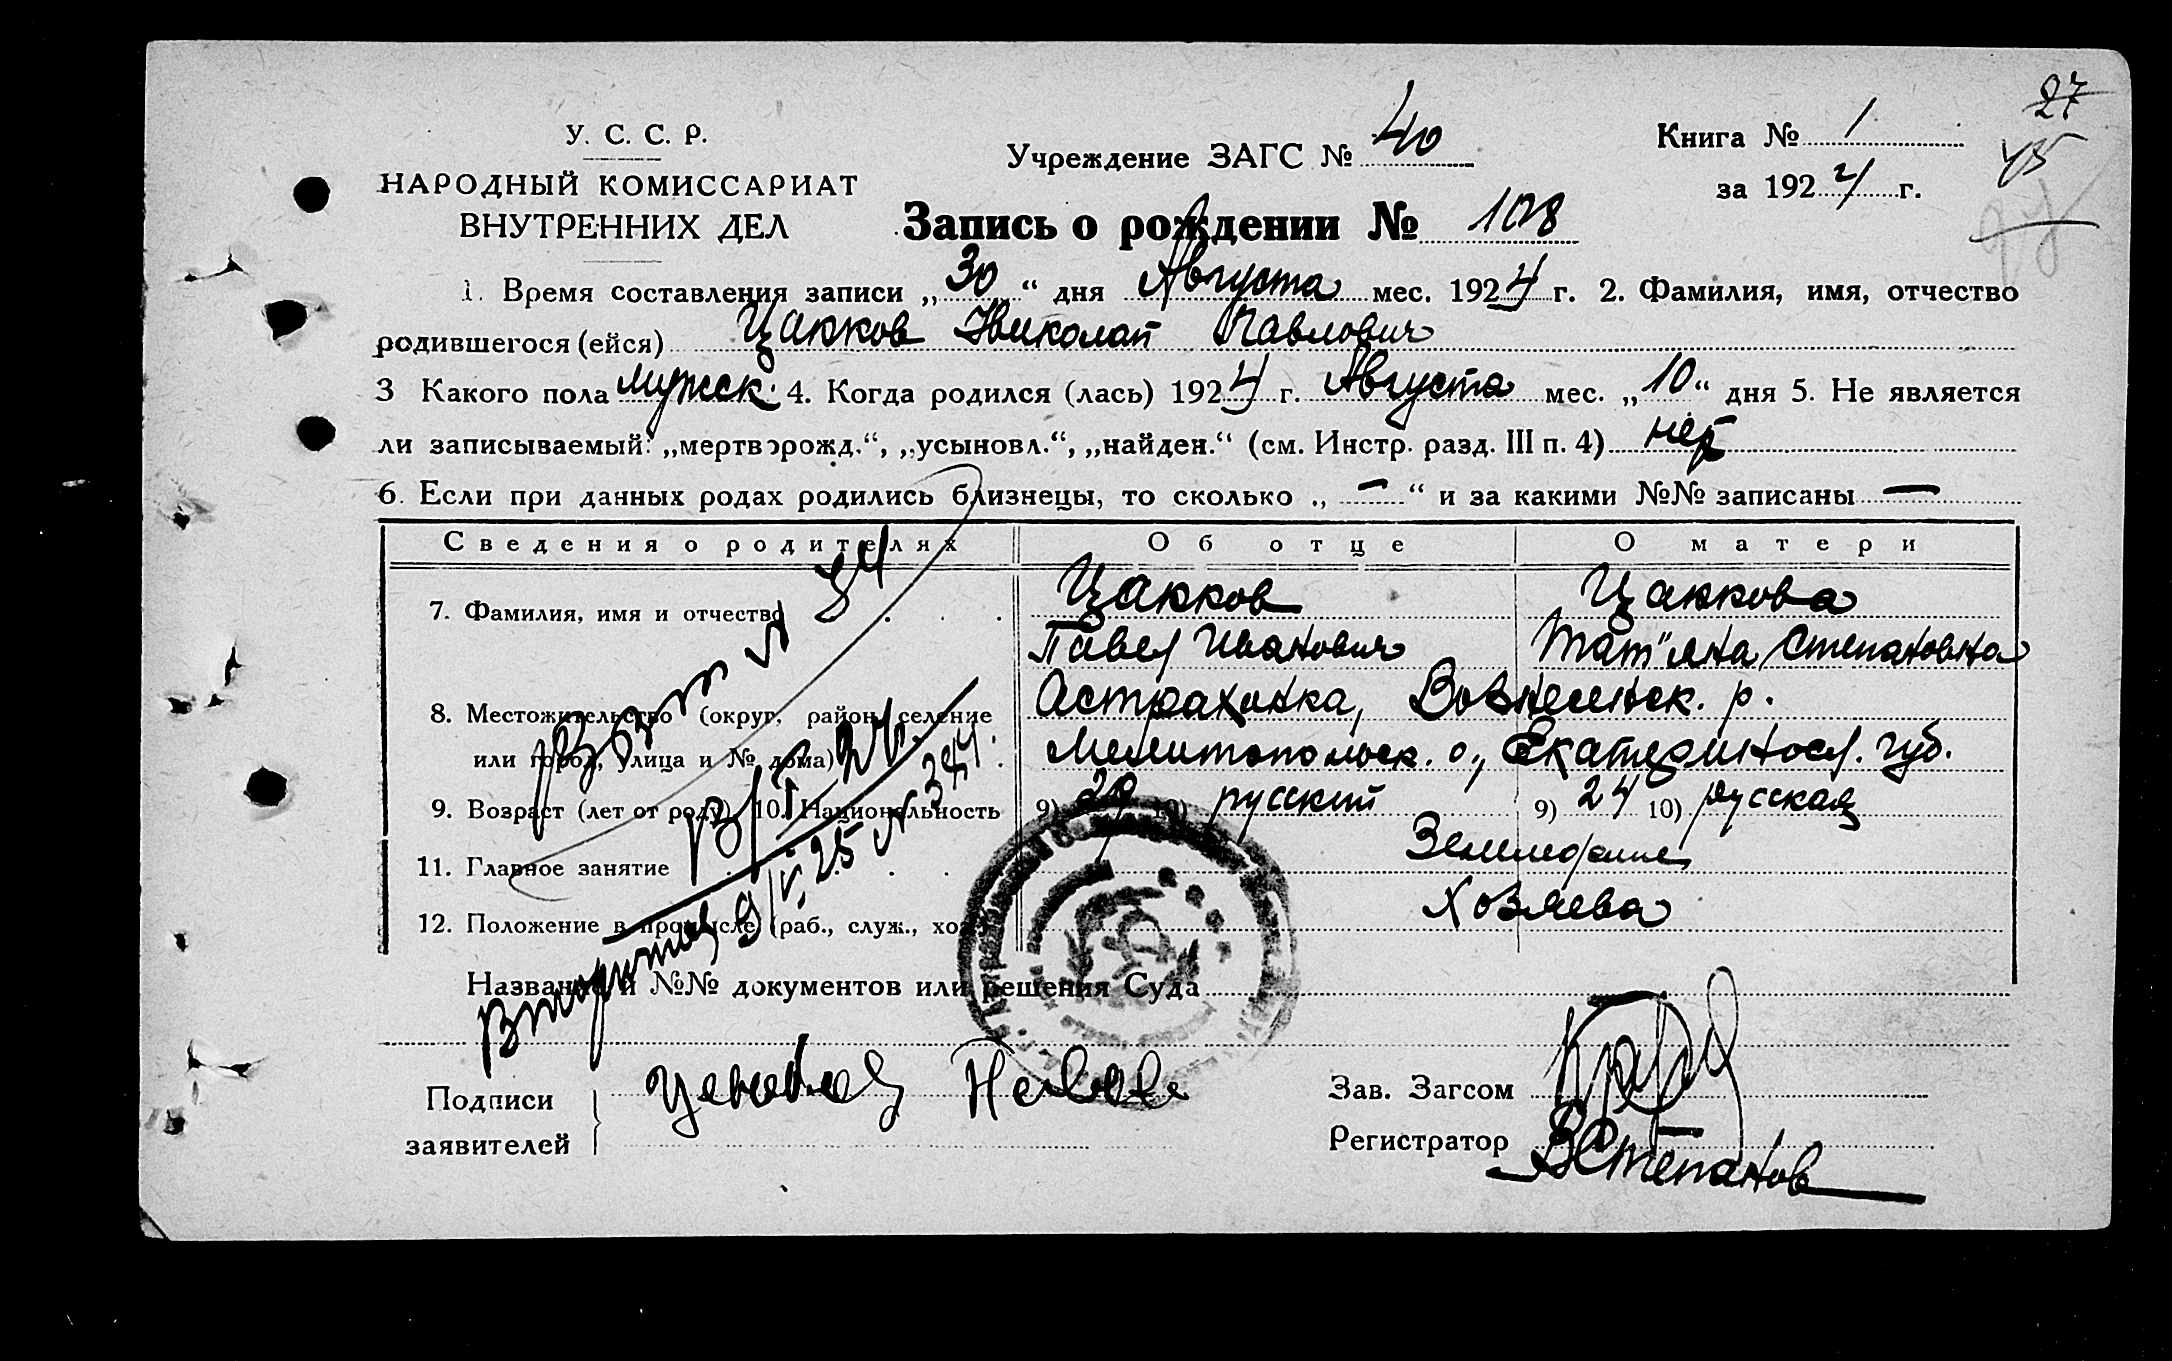 27
У. С. С. Р.
Учреждение ЗАГС № 40
Книга № 1
45
НАРОДНЫЙ КОМИССАРИАТ
за 1924 г.
ВНУТРЕННИХ ДЕЛ
Запись о рождении № 108
1. Время составления записи „30“ дня Августа мес. 1924 г. 2. Фамилия, имя, отчество
родившегося (ейся) Цакков Николай Павлович
3 Какого пола мужск. 4. Когда родился (лась) 1924 г. Августа мес. „10“ дня 5. Не является
ли записываемый: „мертворожд.“, „усыновл.“, „найден.“ (см. Инстр. разд. III п. 4) нет
6. Если при данных родах родились близнецы, то сколько „ — “ и за какими №№ записаны —
Сведения о родителях Об отце О матери
7. Фамилия, имя и отчество Цакков Цаккова
Павел Иванович Тат"яна Степановна
8. Местожительство (округ, район, селение Астраханка, Вознесенск. р.
или город, улица и № дома) Мелитопольск. о., Екатериносл. губ.
9. Возраст (лет от роду) 10. Национальность 9) 29 10) русский 9) 24 10) русская
11. Главное занятие Земледелие
12. Положение в промысле (раб., служ., хоз.) Хозяева
Название и №№ документов или решения Суда
Подписи
заявителей
Зав. Загсом
Регистратор ВСтепанов